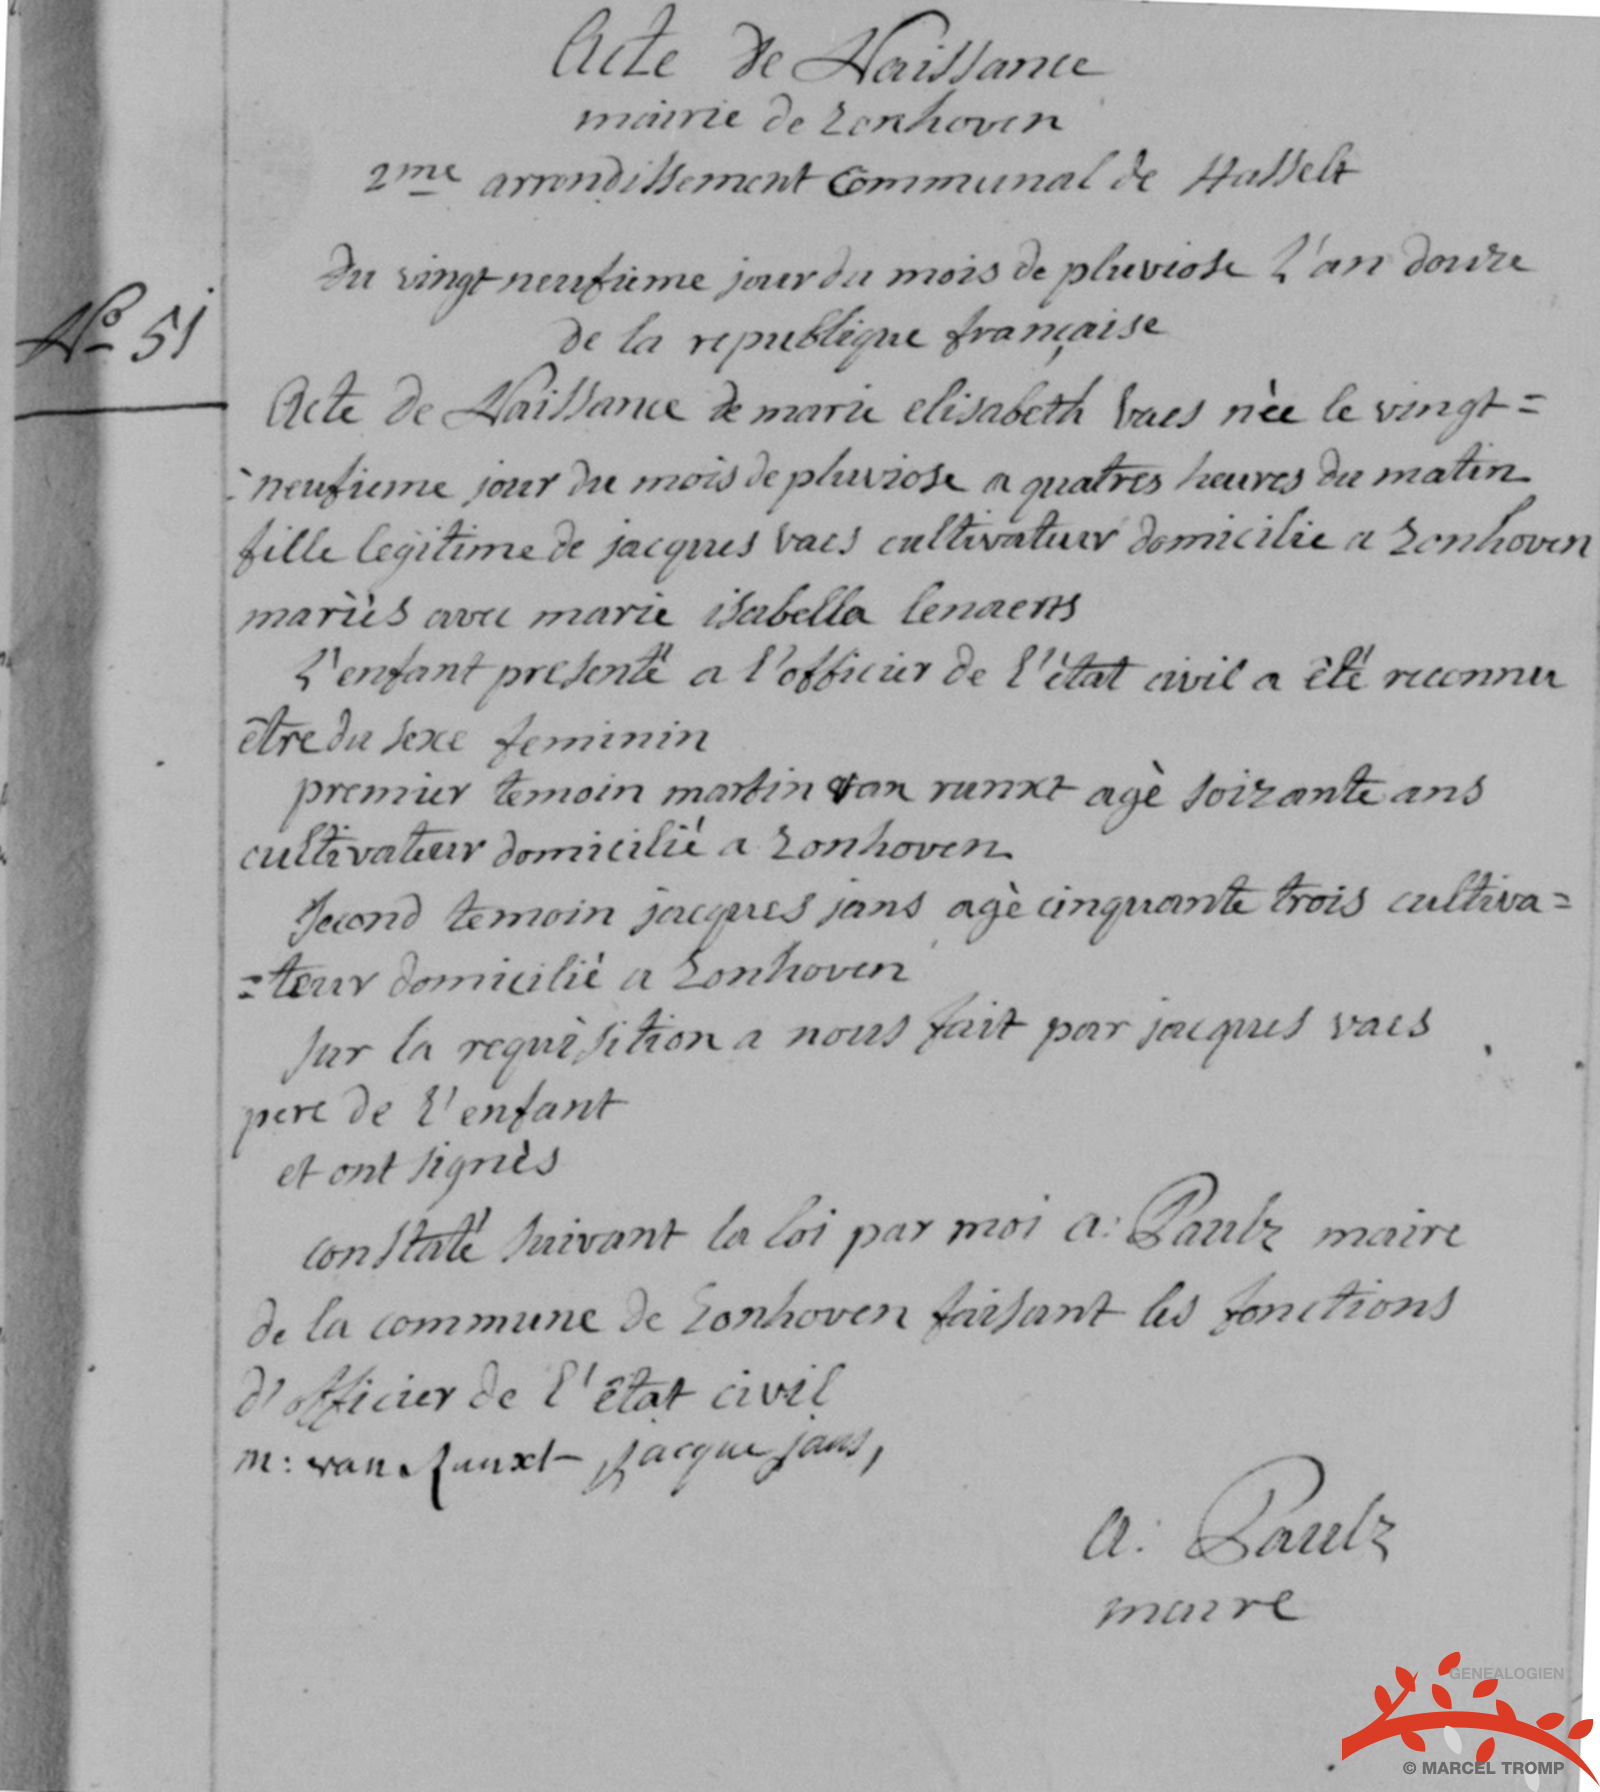 Acte de Naissance
mairie de Zonhoven
2me arrondissement Communal de Hasselt
du vingt neufieme jour du mois de pluviose l'an douze
de la republique française
No 51
Acte de Naissance de marie elisabeth Vaes née le vingt=
=neufieme jour du mois de pluviose a quatres heures du matin
fille legitime de jacques Vaes cultivateur domicilie a Zonhoven
mariès avec marie isabella lenaerts
L'enfant presenté a l'officier de l'état civil a été reconnu
être du sexe feminin
premier temoin martin van runxt agè soizante ans
cultivateur domicilié a Zonhoven
Second temoin jacques jans agè cinquante trois cultiva=
=teur domicilié a Zonhoven
sur la requisition a nous fait par jacques vaes
pere de l'enfant
et ont signès
constaté suivant la loi par moi a: Paulz maire
de la commune de Zonhoven faisant les fonctions
d'officier de l'état civil
m: van Runxt jacque jans,
a: Paulz
maire
GENEALOGIEN
© MARCEL TROMP